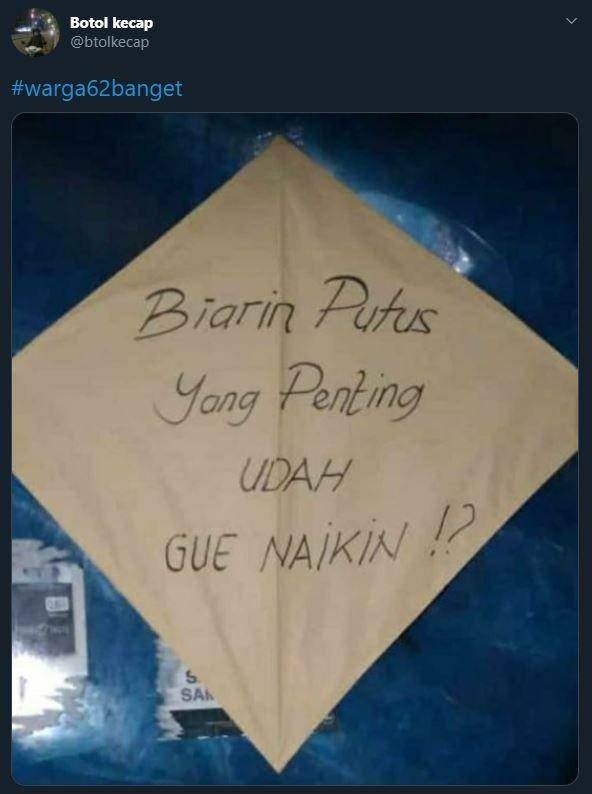 Botol kecap
@btolkecap
#warga62banget
Biarin Putus
Yang Penting
UDAH
GUE NAIKIN !?